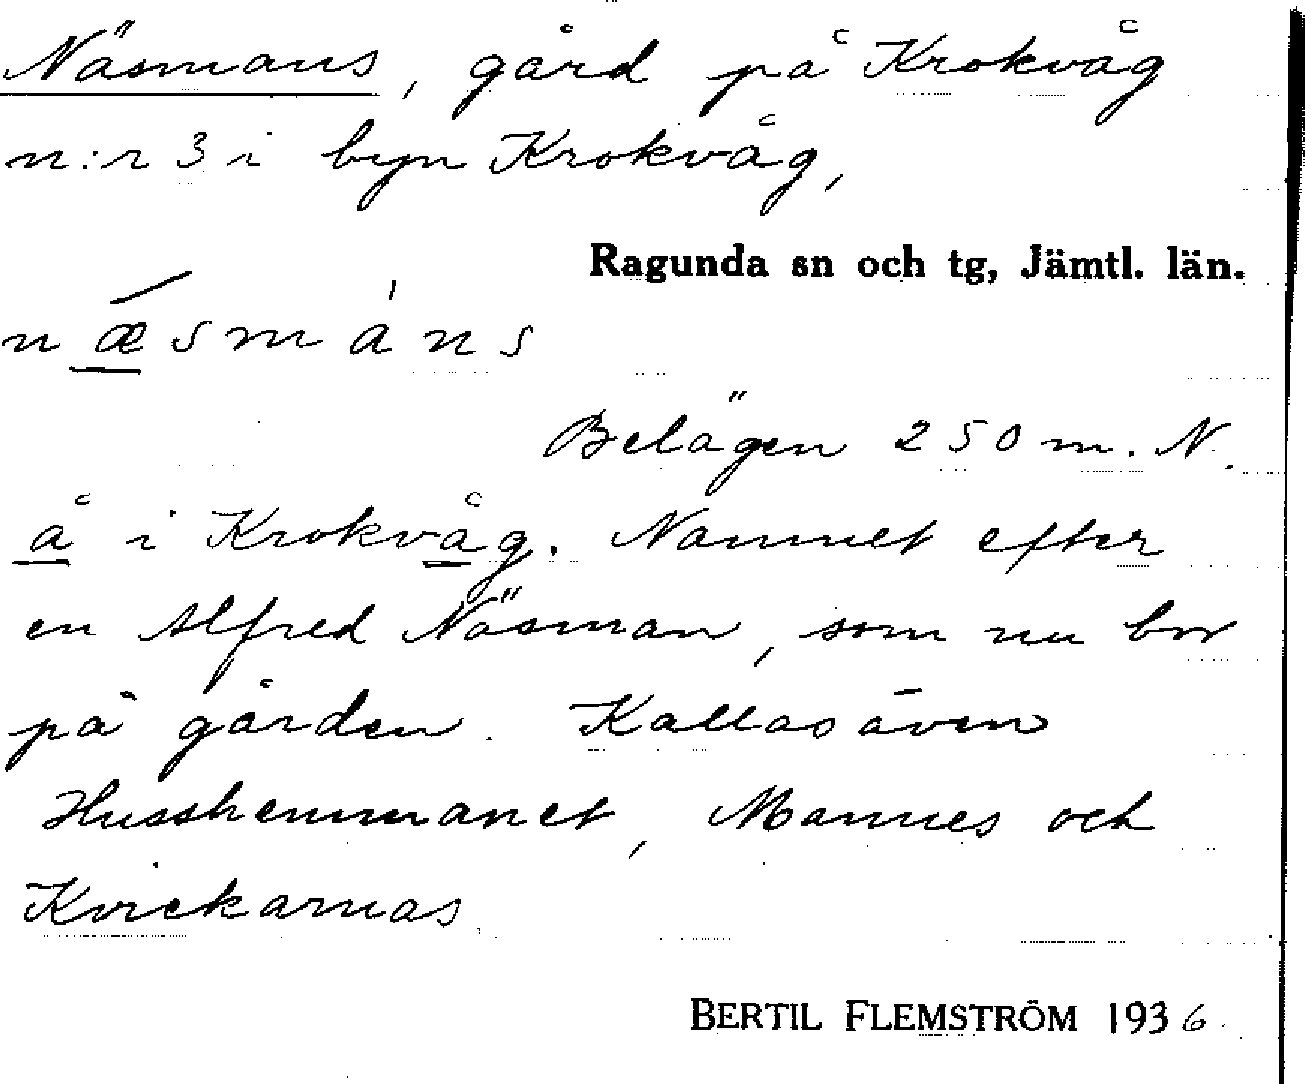 Näsmans, gård på Krokvåg
n:r 3 i byn Krokvåg,
Ragunda sn och tg, Jämtl. län.
næsmáns
Belägen 250 m. N.
å i Krokvåg. Namnet efter
en Alfred Näsman, som nu bor
på gården. Kallas även
Husshemmanet, Mannes och
Kvickarnas
BERTIL FLEMSTRÖM 1936